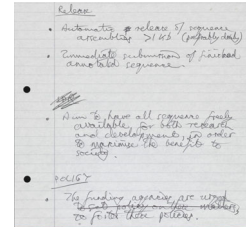 Release
• Automatic release of sequence
assemblies >1kb (preferably daily)
• Immediate submission of finished
annotated sequence.
• Aim to have all sequence freely
available for both research
and development, in order
to maximise the benefit to
society.
POLICY
• The funding agencies are urged
to foster these policies.